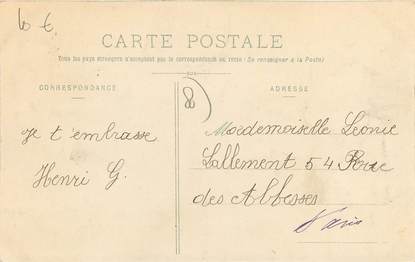 60 €
CARTE POSTALE
Tous les pays étrangers n'acceptent pas la correspondance au recto (Se renseigner à la Poste)
CORRESPONDANCE
ADRESSE
8
Je t'embrasse
Henri G.
Mademoiselle Léonie
Lallement 54 Rue
des Abbesses
Paris